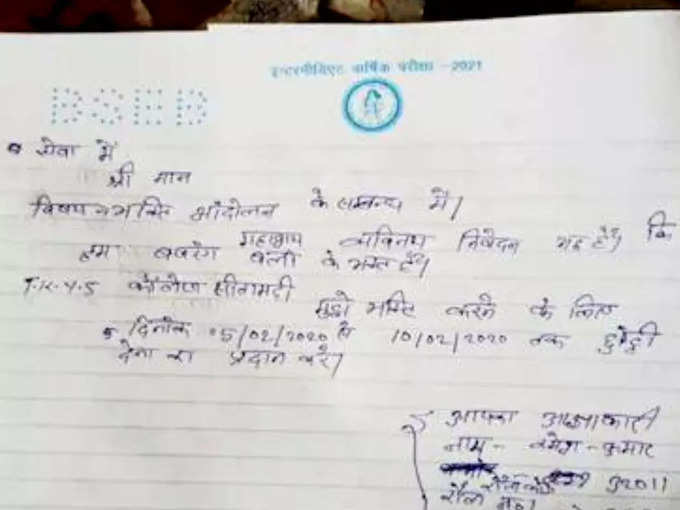 इन्टरमीडिएट वार्षिक परीक्षा -2021
BSEB
सेवा में
श्री मान
विषय - भक्ति आंदोलन के सम्बन्ध में।
महाशय सविनय निवेदन यह है। कि
हम बजरंग बली के भक्त है।
कॉलेज सीतामढ़ी
मुझे भक्ति करने के लिए
दिनांक 05/02/2020 से 10/02/2020 तक छुट्टी
देना का प्रदान करे।
आपका आज्ञाकारी
नाम - कुमार
रौल कोड
रौल न०।